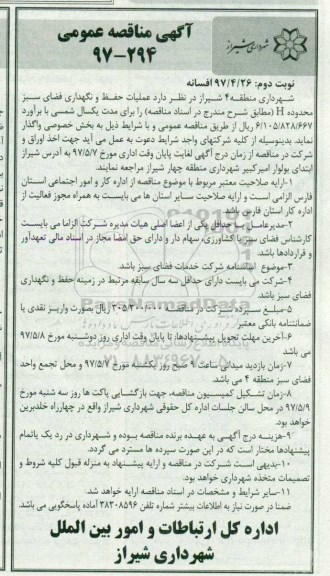 آگهی مناقصه عمومی
۹۷-۲۹۴
شهرداری شیراز
نوبت دوم: ۹۷/۴/۲۶ افسانه
شهرداری منطقه۴ شیراز در نظر دارد عملیات حفظ و نگهداری فضای سبز
محدوده H (مطابق شرح مندرج در اسناد مناقصه) را برای مدت یکسال شمسی با برآورد
۶/۱۰۵/۸۲۸/۶۶۷ ریال از طریق مناقصه عمومی و با شرایط ذیل به بخش خصوصی واگذار
نماید. بدینوسیله از کلیه شرکتهای واجد شرایط دعوت به عمل می آید جهت اخذ اوراق و
شرکت در مناقصه از زمان درج آگهی لغایت پایان وقت اداری مورخ ۹۷/۵/۷ به آدرس شیراز
ابتدای بولوار امیرکبیر شهرداری منطقه چهار شیراز مراجعه نمایند.
۱-ارایه صلاحیت معتبر مربوط با موضوع مناقصه از اداره کار و امور اجتماعی استان
فارس الزامی است و ارایه صلاحیت سایر استان ها می بایست به همراه مجوز فعالیت از
اداره کار استان فارس باشد.
۲-مدیرعامل یا حداقل یکی از اعضا اصلی هیات مدیره شرکت الزاما می بایست
کارشناس فضای سبز یا کشاورزی، سهام دار و دارای حق امضا مجاز در اسناد مالی تعهدآور
و قراردادها باشد.
۳-موضوع اساسنامه شرکت خدمات فضای سبز باشد.
۴-شرکت می بایست دارای حداقل سه سال سابقه مرتبط در زمینه حفظ و نگهداری
فضای سبز باشد.
۵-مبلغ سپرده شرکت در مناقصه ۳۰۵/۳۰۰/۰۰۰ ریال بصورت واریز نقدی یا
ضمانتنامه بانکی معتبر
۶-آخرین مهلت تحویل پیشنهادها، تا پایان وقت اداری روز دوشنبه مورخ ۹۷/۵/۸
می باشد
۷-زمان بازدید میدانی ساعت ۹ صبح روز یکشنبه مورخ ۹۷/۵/۷ و محل تجمع واحد
فضای سبز منطقه ۴ می باشد.
۸-زمان تشکیل کمیسیون مناقصه، جهت بازگشایی پاکت ها روز سه شنبه مورخ
۹۷/۵/۹ در محل سالن جلسات اداره کل حقوقی شهرداری شیراز واقع در چهارراه خلدبرین
خواهد بود.
۹-هزینه درج آگهی به عهده برنده مناقصه بوده و شهرداری در رد یک یاتمام
پیشنهادها مختار است که در این صورت سپرده ها مسترد می گردد.
۱۰-بدیهی است شرکت در مناقصه و ارایه پیشنهاد به منزله قبول کلیه شروط و
تصمیمات متخذه شهرداری خواهد بود.
۱۱-سایر شرایط و مشخصات در اسناد مناقصه ارایه خواهد شد.
ضمنا در صورت نیاز به اطلاعات بیشتر شماره تلفن ۳۸۳۰۸۵۹۶ آماده پاسخگویی می باشد.
اداره کل ارتباطات و امور بین الملل
شهرداری شیراز